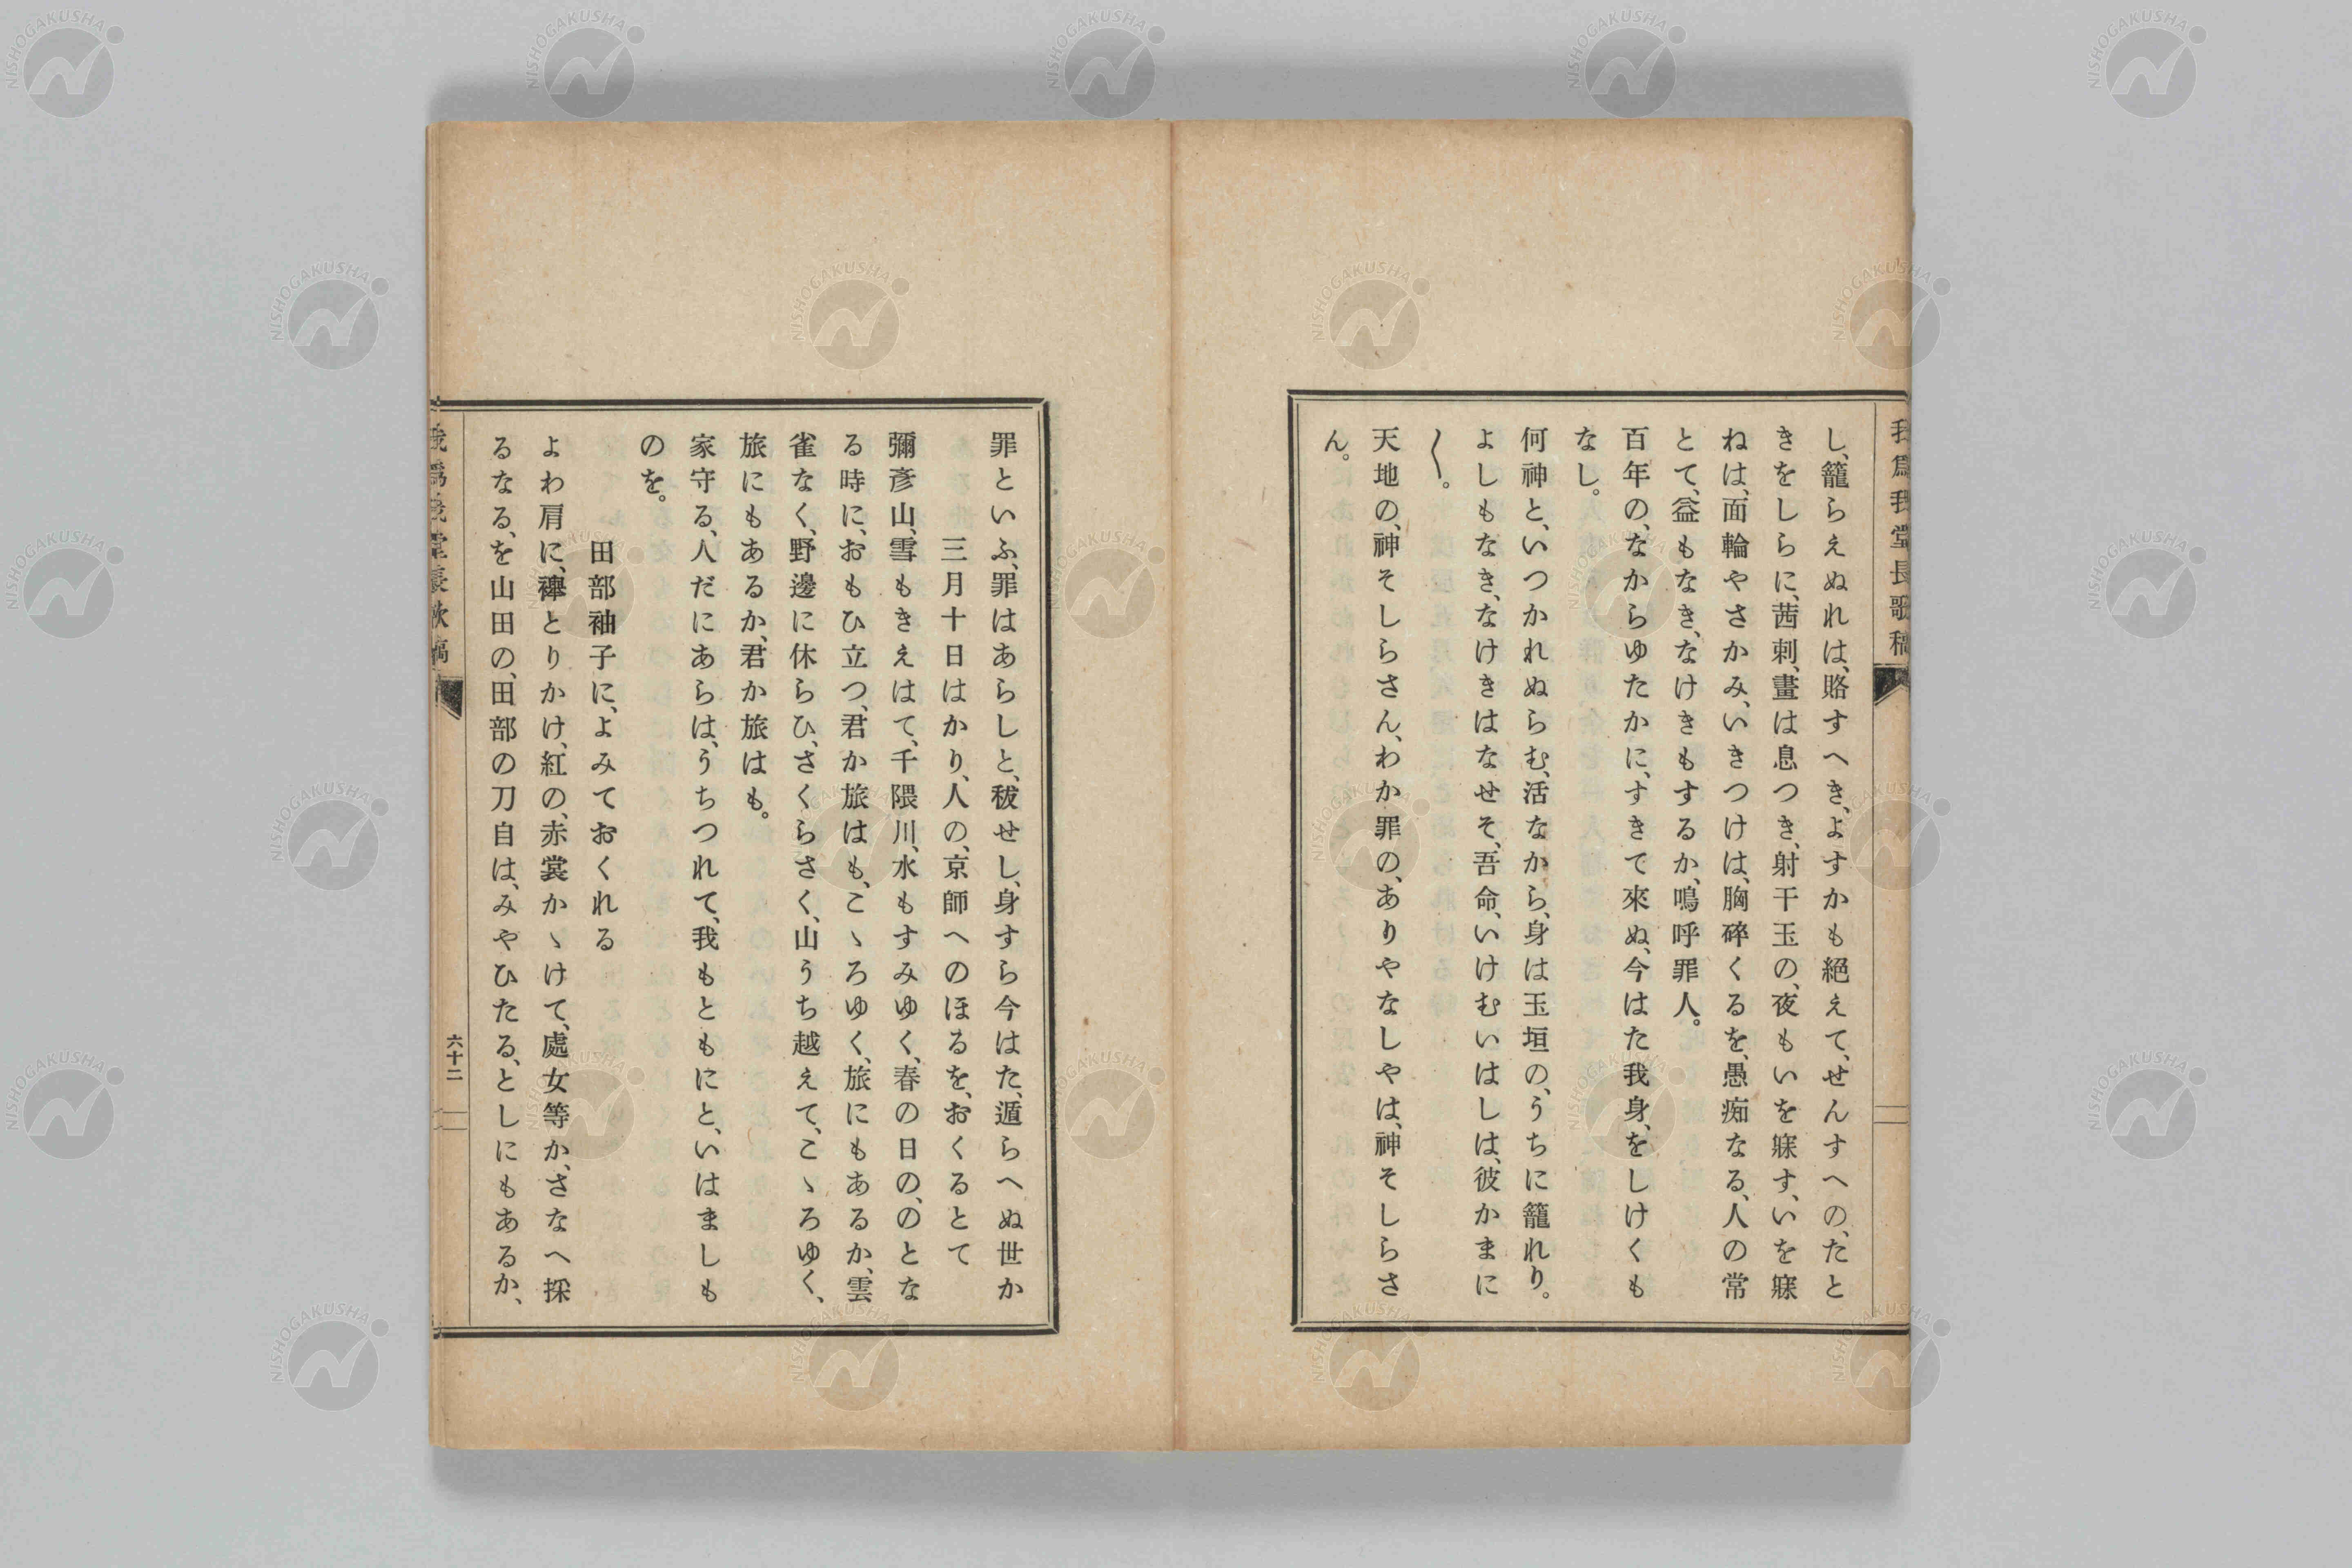 我爲我堂長歌稿
し、籠らえぬれは、賂すへき、よすかも絕えて、せんすへの、たと
きをしらに、茜刺、晝は息つき、射干玉の、夜もいを寐す、いを寐
ねは、面輪やさかみ、いきつけは、胸碎くるを、愚痴なる、人の常
とて、益もなき、なけきもするか、嗚呼罪人。
百年の、なからゆたかに、すきて來ぬ、今はた我身、をしけくも
なし。
何神と、いつかれぬらむ、活なから、身は玉垣の、うちに籠れり。
よしもなき、なけきはなせそ、吾命、いけむいはしは、彼かまに
〱。
天地の、神そしらさん、わか罪の、ありやなしやは、神そしらさ
ん。
罪といふ、罪はあらしと、秡せし、身すら今はた、遁らへぬ世か
三月十日はかり、人の、京師へのほるを、おくるとて
彌彥山、雪もきえはて、千隈川、水もすみゆく、春の日の、のとな
る時に、おもひ立つ、君か旅はも、こゝろゆく、旅にもあるか、雲
雀なく、野邊に休らひ、さくらさく、山うち越えて、こゝろゆく、
旅にもあるか、君か旅はも。
家守る、人だにあらは、うちつれて、我もともにと、いはましも
のを。
田部袖子に、よみておくれる
よわ肩に、襷とりかけ、紅の、赤裳かゝけて、處女等か、さなへ採
るなる、を山田の、田部の刀自は、みやひたる、としにもあるか、
我爲我堂長歌稿
六十二